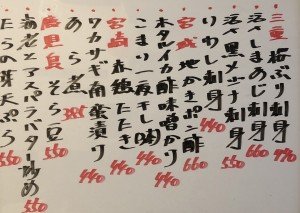 三重 梅ぶり刺身 770
活〆しまあじ刺身 660
活〆黒メジナ刺身 550
いわし刺身 440
宮城 地かきポン酢 660
ホタルイカ酢味噌かけ 440
こまい一夜干し 440
宮崎 赤鶏たたき 440
ワカサギ南蛮漬け 440
あら煮
鹿児島 そら豆 550
海老とアスパラバター炒め 550
たらの芽天ぷら 550